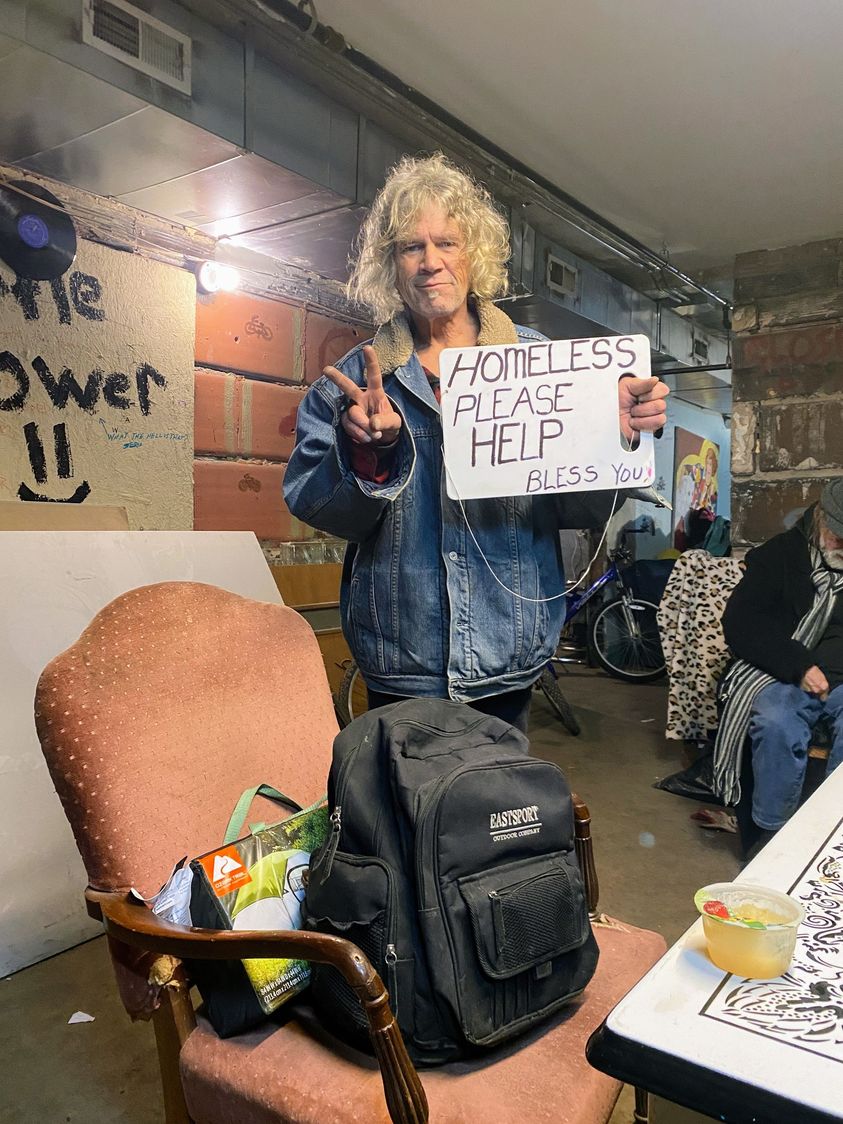 ower
WHAT THE HELL IS THAT?
HOMELESS
PLEASE
HELP
BLESS YOU!
EASTSPORT
OUTDOOR COMPANY
OZARK TRAIL